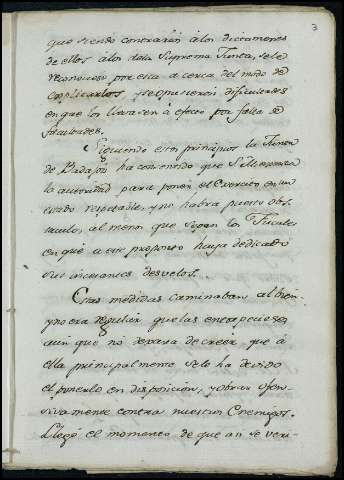 3
que siendo contrarios á los dictamenes
de ellos a los de la Suprema Junta, se le
reconviniese por esta a cerca del modo de
explicarlos y se opusieron dificultades
en que los llevasen á efecto por falta de
facultades.
Siguiendo estos principios la Junta
de Badajoz ha convenido que S. M. exerza
la autoridad para poner el Exercito en un
estado respetable, y no habra puesto obs
taculo, al menos que sepan los Fiscales
en que a ese proposito haya dedicado
sus incesantes desvelos.
Estas medidas caminaban al bien
y no era regular, que las entorpeciesen
aun que no dexara de creer, que á
ella principalmente se le ha devido
el ponerlo en disposicion, y obrar ofen
sivamente contra nuestros Enemigos.
Llegó el momento de que asi se veri-